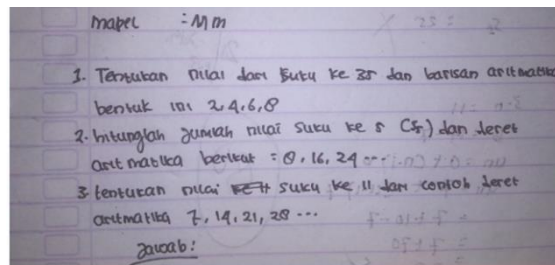 mapel : Mm
1. Tentukan nilai dari suku ke 35 dan barisan aritmatika
bentuk ini 2,4,6,8
2. hitunglah jumlah nilai suku ke 5 (S5) dan deret
aritmatika berikut = 8, 16, 24
3. tentukan nilai suku ke 11 dari contoh deret
aritmatika 7, 14, 21, 28 ...
Jawab :